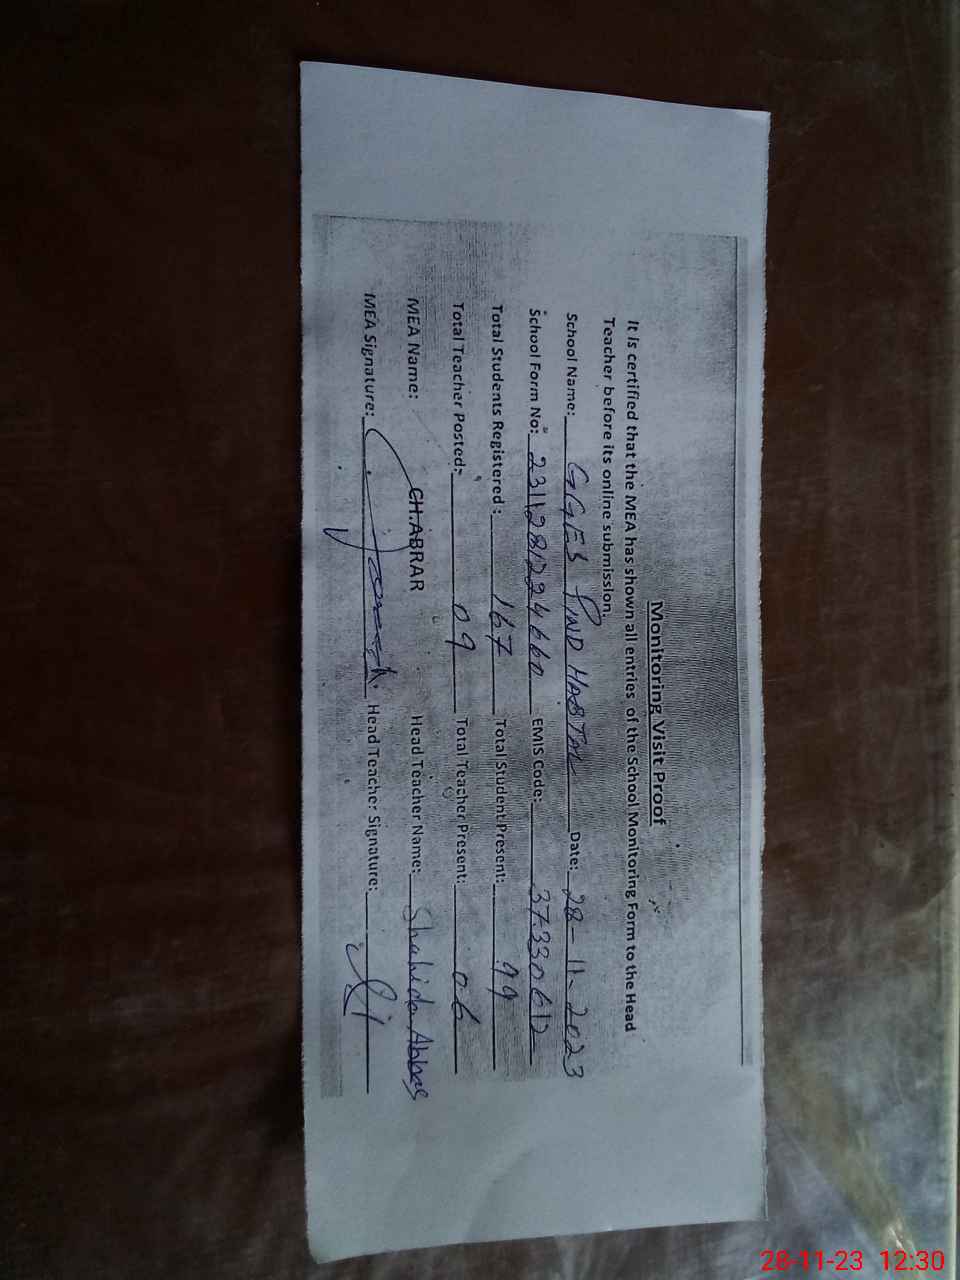 Monitoring Visit Proof
It is certified that the MEA has shown all entries of the School Monitoring Form to the Head
Teacher before its online submission.
School Name: GGES PIND HABTAL Date: 28-11-2023
School Form No: 2311281224660 EMIS Code: 37330612
Total Students Registered: 167 Total Student Present: 99
Total Teacher Posted: 09 Total Teacher Present: 06
MEA Name: CH.ABRAR Head Teacher Name: Shahida Abbas
MEA Signature: Head Teacher Signature:
28-11-23 12:30